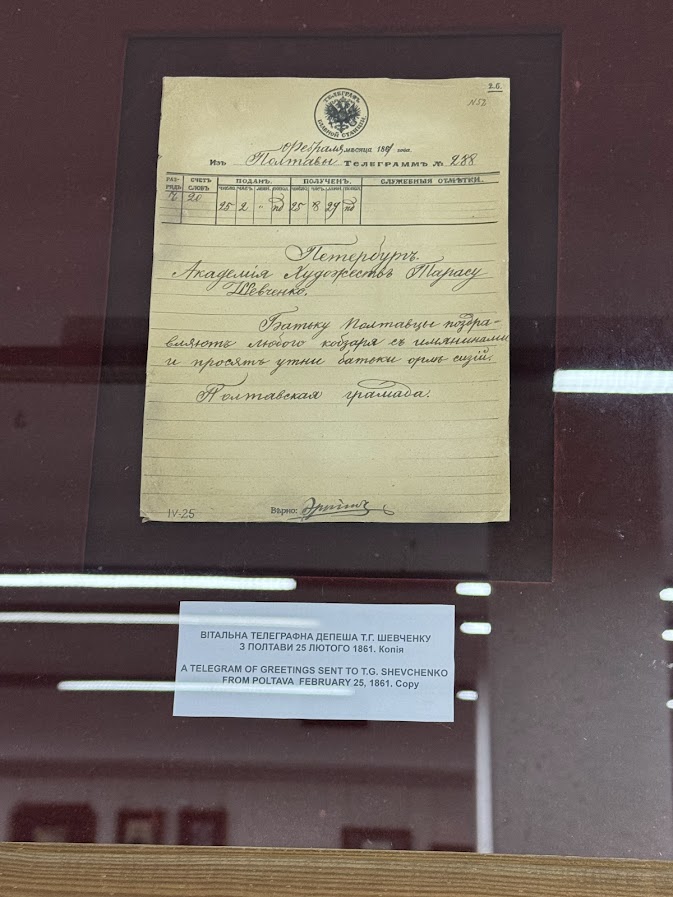 2.б.
N52
ТЕЛЕГРАФЪ
ГЛАВНОЙ СТАНЦІИ
Февраля мѣсяца 1861 года.
Изъ Полтавы ТЕЛЕГРАММЪ № 238
РАЗРЯДЪ СЧЕТЪ СЛОВЪ ПОДАН. ПОЛУЧЕН. СЛУЖЕБНЫЯ ОТМѢТКИ
ЧИСЛО. ЧАС. МИН. ПОПОЛ. ЧИСЛО. ЧАС. МИН. ПОПОЛ.
20 25 2 " пд 25 8 29 пд
Петербургъ.
Академія Художествъ Тарасу
Шевченко.
Батьку Полтавцы поздра-
вляютъ любого кобзаря съ имянинами
и просятъ утни батьки орлъ сизій.
Полтавская грамада.
IV-25
Вѣрно:
ВІТАЛЬНА ТЕЛЕГРАФНА ДЕПЕША Т.Г. ШЕВЧЕНКУ
З ПОЛТАВИ 25 ЛЮТОГО 1861. Копія
A TELEGRAM OF GREETINGS SENT TO T.G. SHEVCHENKO
FROM POLTAVA FEBRUARY 25, 1861. Copy